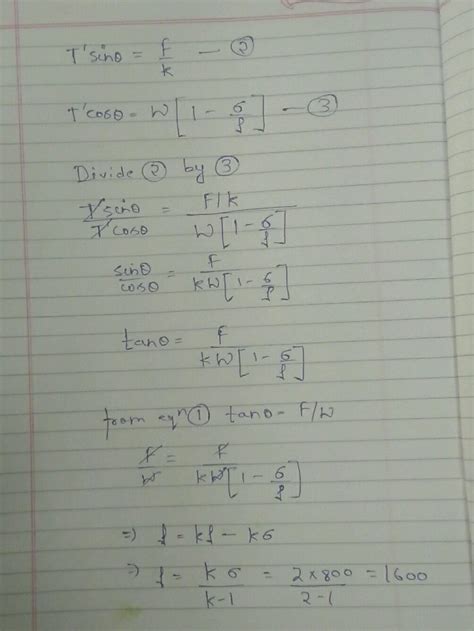 T'sinθ = F/k — ②
T'cosθ = W[1 - σ/ρ] — ③
Divide ② by ③
T'sinθ/T'cosθ = F/k / W[1 - σ/ρ]
sinθ/cosθ = F/kW[1 - σ/ρ]
tanθ = F/kW[1 - σ/ρ]
from eqn ① tanθ = F/W
F/W = F/kW[1 - σ/ρ]
⇒ ρ = kρ - kσ
⇒ ρ = kσ/k-1 = 2×800/2-1 = 1600